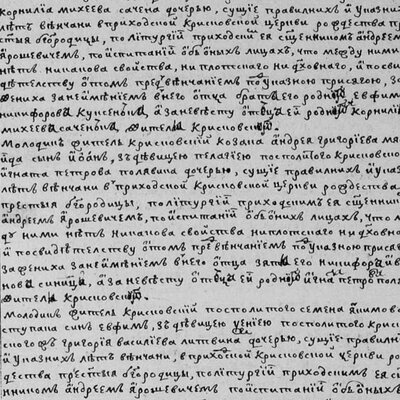 корнилїа михеева сачена дочерью, сущїе правилнихъ и указних
лѣтъ вѣнчани в приходской крисковской церкви рождества пр
стыя бгородицы, по литургїи приходским ея сщенником андреем
ярошевичем, по испитанїи об оныхъ лицахъ, что между ними
нѣтъ никакова свойства, ни плотскаго ни дховнаго, и посви
дѣтелству о том пред вѣнчанїем по указною присягою, за
жениха за неимѣнїем в него отца братъ его родній ефим
никифоровъ, а за невѣсту отецъ ей родній корнилій
михеевъ саченокъ, жители крисковскій.
Молодикъ житель крисковскій козака андрея григорїева
сынъ иоанъ, з дѣвицею пелагїею посполитого крисковского
игната петрова дочерью, сущїе правилнихъ и указ
лѣтъ вѣнчани в приходской крисковской церкви рождества
престыя бгородицы, по литургїи приходскимъ ея сщенник
андреем ярошевичем, по испитанїи об оних лицахъ, что
ду ними нѣтъ никакова свойства ни плотскаго ни дховног
и посвидѣтелству о том пред вѣнчанїем по указною присяг
за жениха за неимѣнїем в него отца никифоръ
синица, а за невѣсту отецъ ей родній игнатъ петровъ
жители крисковскій.
Молодикъ житель крисковскій посполитого семена
ступака синъ ефимъ, з дѣвицею посполитого крис
ского григорїа василїева литвина дочерью, сущїе правилних
и указних лѣтъ вѣнчани, в приходской крисковской церкви ро
дества престыя бгородицы, по литургїи приходским ея сщ
нником андреем ярошевичем по испитанїи об оных